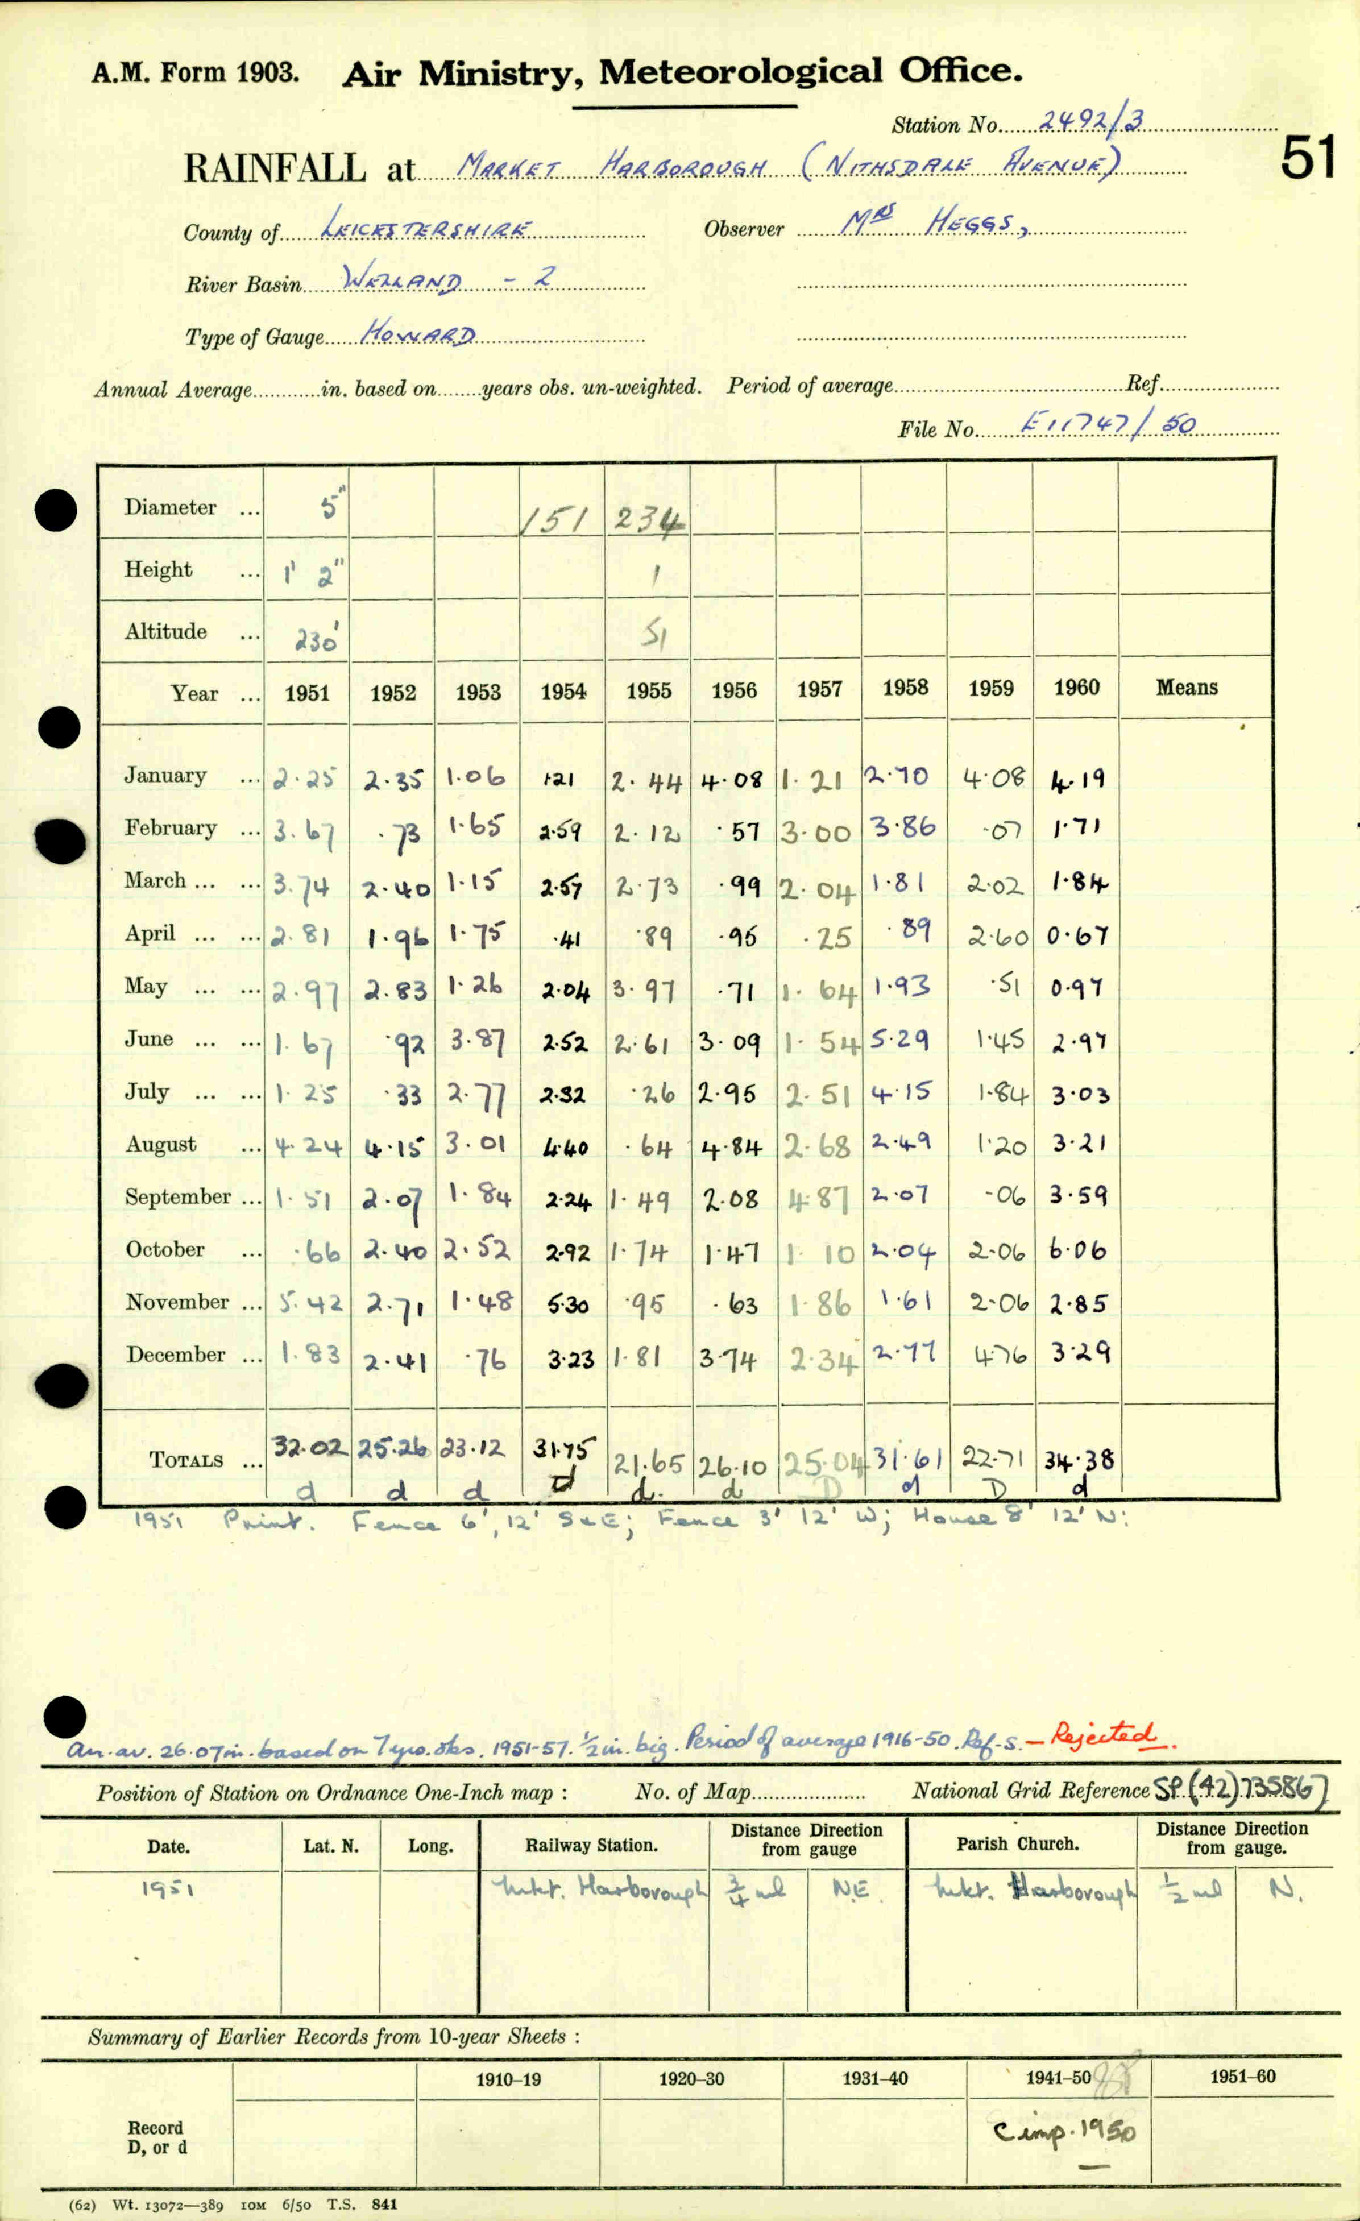 A.M. Form 1903. Air Ministry, Meteorological Office.
Station No. 2492/3
51
RAINFALL at MARKET HARBOROUGH (NITHSDALE AVENUE)
County of LEICESTERSHIRE Observer MRS HEGGS,
River Basin WELLAND - 2
Type of Gauge HOWARD
Annual Average in. based on years obs. un-weighted. Period of average Ref.
File No. E11747/50
Diameter ... 5" 151 234
Height ... 1' 2" 1
Altitude ... 230' 51
Year ... 1951 1952 1953 1954 1955 1956 1957 1958 1959 1960 Means
January ... 2.25 2.35 1.06 1.21 2.44 4.08 1.21 2.70 4.08 4.19
February ... 3.67 .73 1.65 2.59 2.12 .57 3.00 3.86 .07 1.71
March ... ... 3.74 2.40 1.15 2.57 2.73 .99 2.04 1.81 2.02 1.84
April ... ... 2.81 1.96 1.75 .41 .89 .95 .25 .89 2.60 0.67
May ... ... 2.97 2.83 1.26 2.04 3.97 .71 1.64 1.93 .51 0.97
June ... ... 1.67 .92 3.87 2.52 2.61 3.09 1.54 5.29 1.45 2.97
July ... ... 1.25 .33 2.77 2.32 .26 2.95 2.51 4.15 1.84 3.03
August ... 4.24 4.15 3.01 4.40 .64 4.84 2.68 2.49 1.20 3.21
September ... 1.51 2.07 1.84 2.24 1.49 2.08 4.87 2.07 .06 3.59
October ... .66 2.40 2.52 2.92 1.74 1.47 1.10 2.04 2.06 6.06
November ... 5.42 2.71 1.48 5.30 .95 .63 1.86 1.61 2.06 2.85
December ... 1.83 2.41 .76 3.23 1.81 3.74 2.34 2.77 4.76 3.29
TOTALS ... 32.02 25.26 23.12 31.75 21.65 26.10 25.04 31.61 22.71 34.38
d d d d d. d D d D d
1951 Print. Fence 6', 12' S & E; Fence 3' 12' W; House 8' 12' N:
An. av. 26.07 in. based on 7 yrs. obs. 1951-57. ½ in. big. Period of average 1916-50. Ref. S. — Rejected.
Position of Station on Ordnance One-Inch map : No. of Map National Grid Reference SP (42) 735867
Date. Lat. N. Long. Railway Station. Distance Direction from gauge Parish Church. Distance Direction from gauge.
1951 Mkt. Harborough ¾ ml N.E. Mkt. Harborough ½ ml N.
Summary of Earlier Records from 10-year Sheets :
1910–19 1920–30 1931–40 1941–50 1951–60
Record D, or d
C imp. 1950
(62) Wt. 13072—389 10M 6/50 T.S. 841